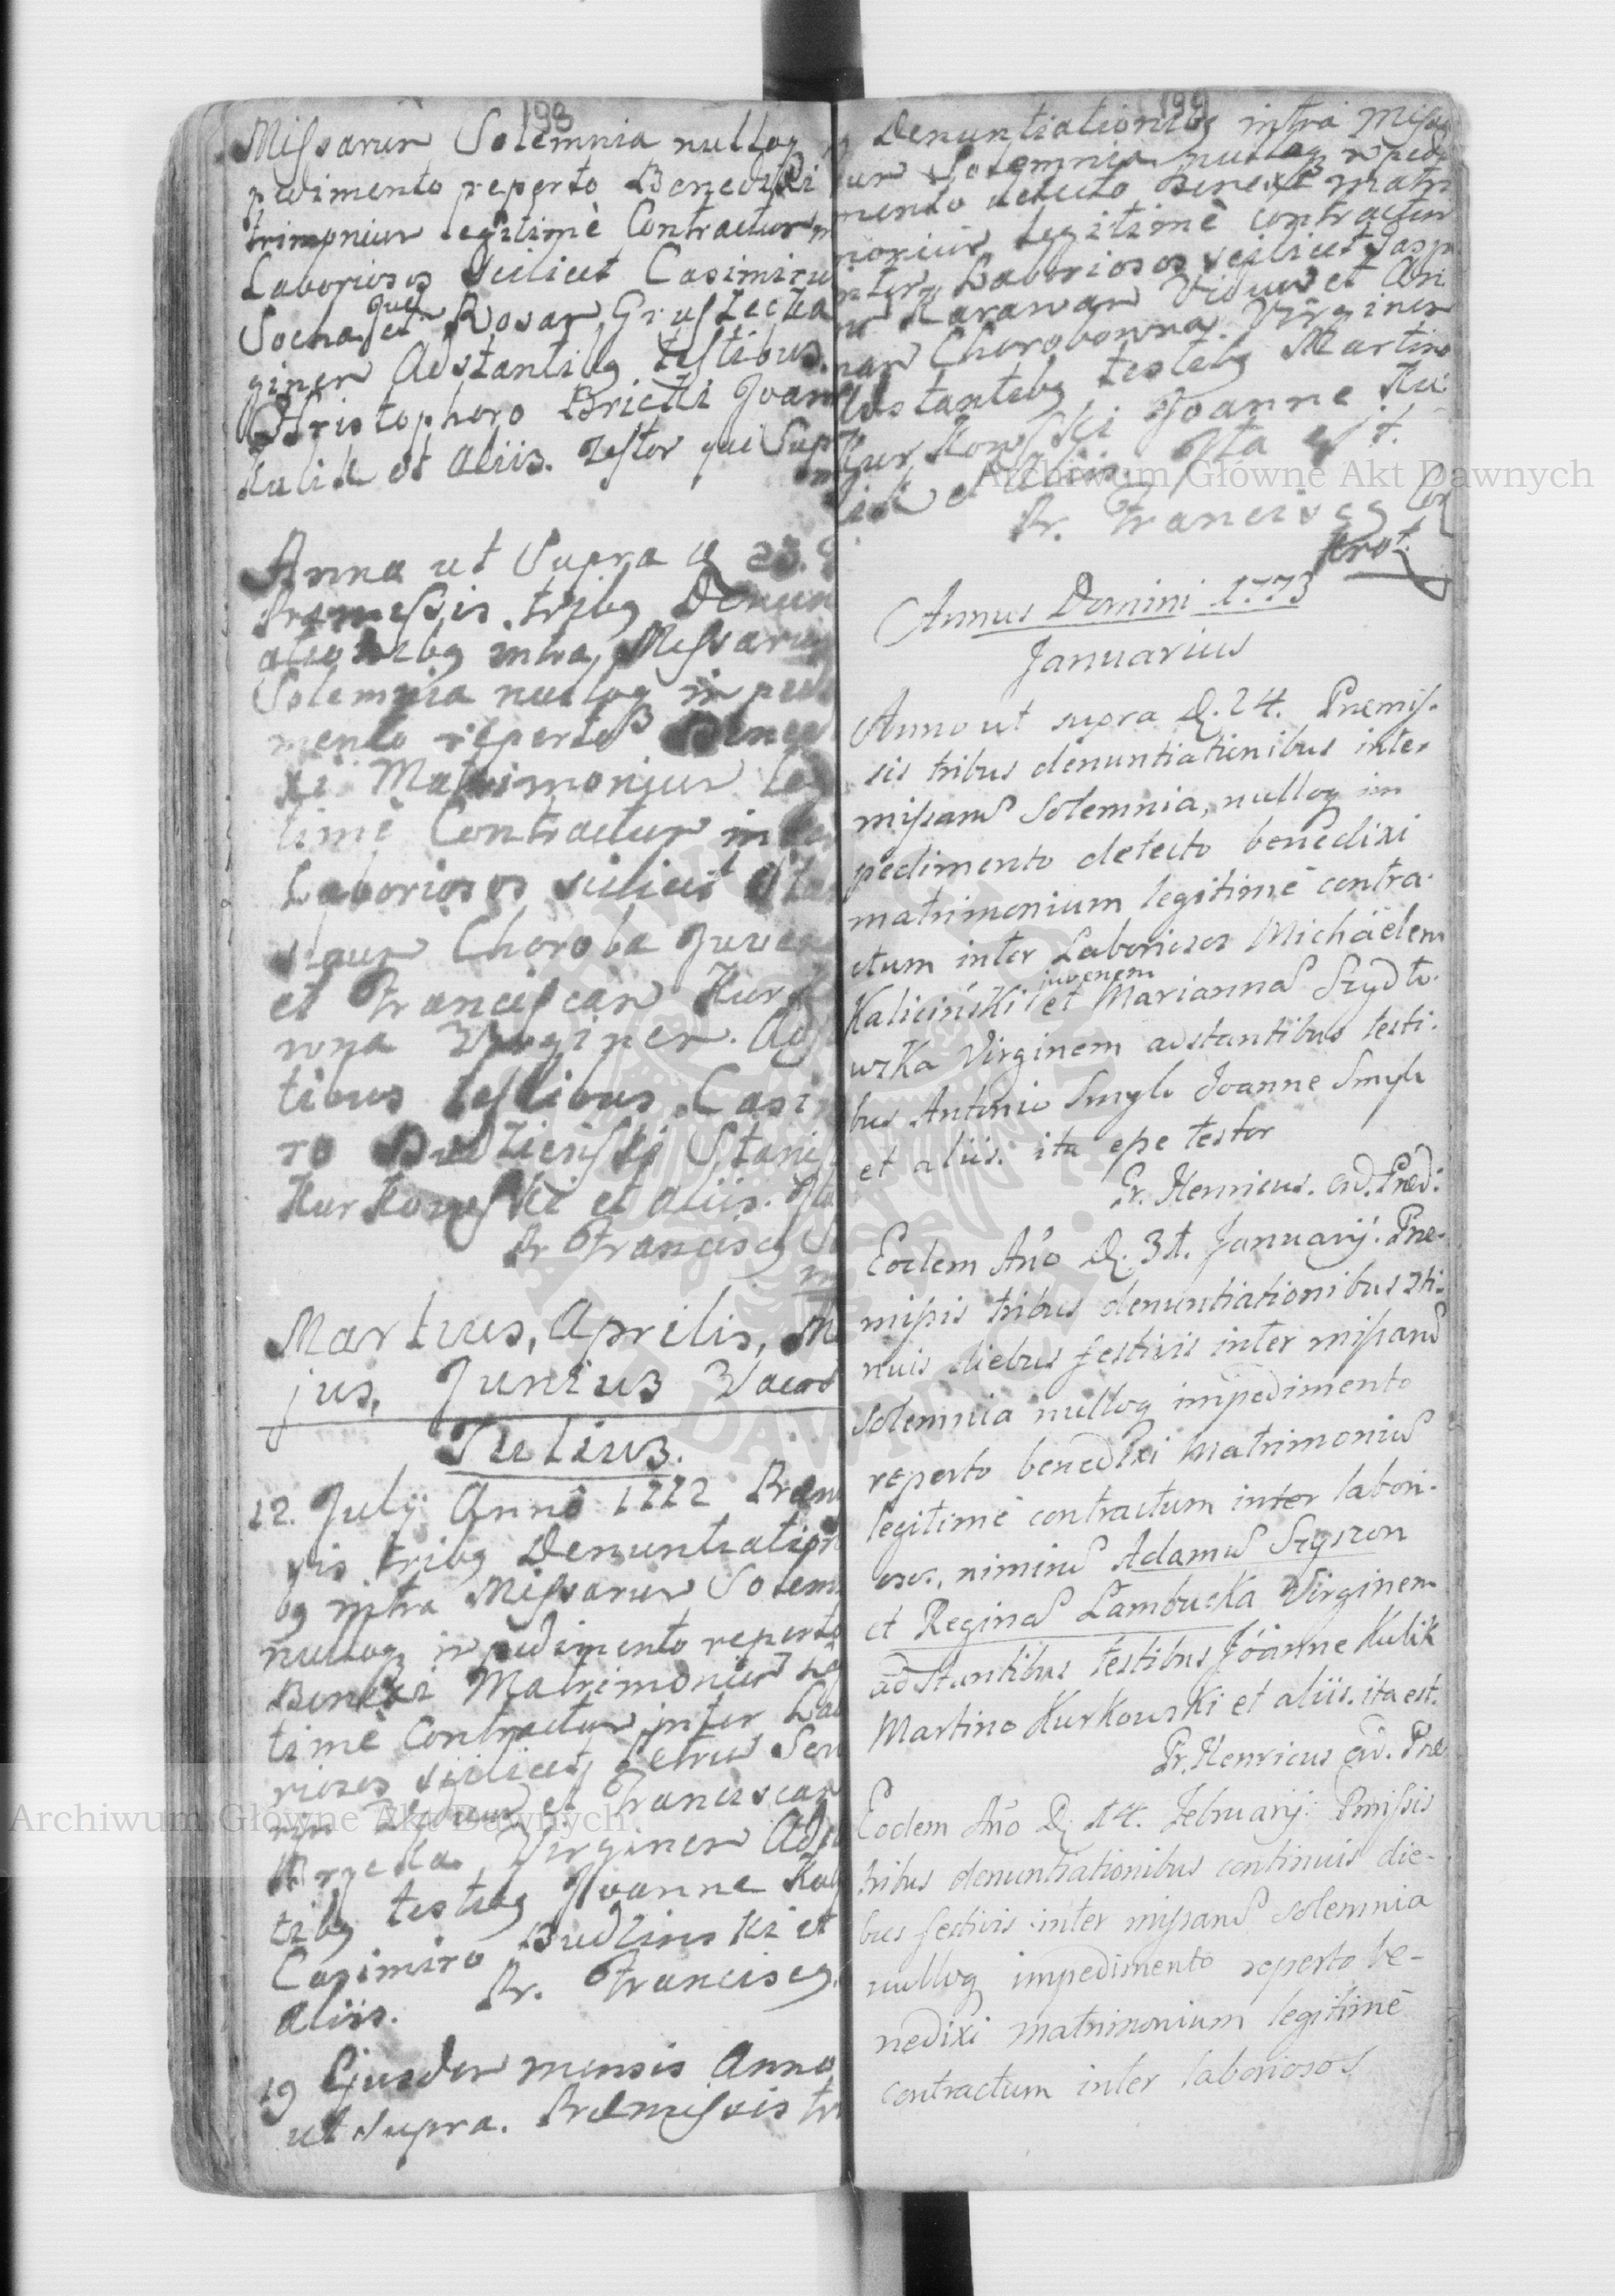 198
Missarum Solemnia nulloq
pedimento reperto Benedixi
trimonium legitimè Contractum
Laboriosos scilicet Casimiru
Socha Juv et Rosam Grustecka
ginem Adstantibq testibus
Christophoro Bricki Joan
Kulik et aliis. Testor qui Supr

Anno ut Supra d 23.
Præmissis tribq Denun
ationibq intra Missarum
Solemnia nulloq im pedi
mento reperto Bened
xi Matrimonium Leg
timè Contractum inter
Laboriosos scilicet
Choroba Juven
et Franciscam Kurko
wna Virginem. Adst
tibus testibus Casi
ro Budzieński Stani
Kurkowski et aliis. Ita
Pr Franciscq
Martius, Aprilis, M
jus, Junius Vacat
Julius.
12. Julij Annô 1772 Præm
sis tribq Denuntiation
bq intra Missarum Solem
nulloq impedimento reperto
Benedixi Matrimonium Leg
timè Contractum inter Lab
riosos scilicet Petrum
Viduum et Franciscam
Virginem Adst
tibq testibq Joanne Kul
Casimiro Budzinski et
aliis. Pr. Franciscq
19 Ejusdem mensis Anno
ut supra. Præmissis tri
199
Denuntiationibq intra Missa
rum Solemnia nulloq impedi
mento detecto Benedixi matri
monium legitimè contractum
inter Laboriosos scilicet Casp
Karawan Viduum et An
nam Chorobowna Virginem
Adstantibq testibq Martino
Kurkowski Joanne Ku
lik et aliis. Ita est.
Pr. Franciscq
Annus Domini 1773
Januarius
Anno ut supra d. 24. Præmis-
sis tribus denuntiationibus inter
missarũ Solemnia, nulloq im
pedimento detecto benedixi
matrimonium legitimè contra-
ctum inter Laboriosos Michäelem
Kaliciński juvenem et Mariannã Szydło-
wska Virginem adstantibus testi-
bus Antonio Smyk Joanne Smyk
et aliis. ita esse testor
Pr. Henricus. Ord. Præd:
Eodem Año d. 31. Januarij. Præ-
missis tribus denuntiationibus
nuis diebus festivis inter missarũ
solemnia nulloq impedimento
reperto benedixi Matrimoniũ
legitimè contractum inter labori-
osos, nimirũ Adamũ Szyszon
et Reginã Lambucka Virginem
adstantibus testibus Jóanne Kulik
Martino Kurkowski et aliis. ita est.
Pr. Henricus Ord. Præ
Eodem Año D. 14. Februarij: Pmissis
tribus denuntiationibus continuis die-
bus festivis inter missarũ solemnia
nulloq impedimento reperto be-
nedixi matrimonium legitimè
contractum inter laboriosos
Archiwum Główne Akt Dawnych
Archiwum Główne Akt Dawnych